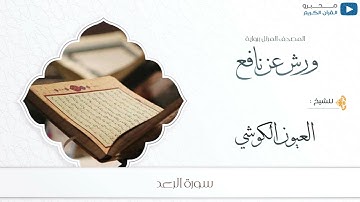 محبرو
القرآن الكريم
المصحف المرتل برواية
ورش عن نافع
للشيخ :
العيون الكوشي
سورة الرعد